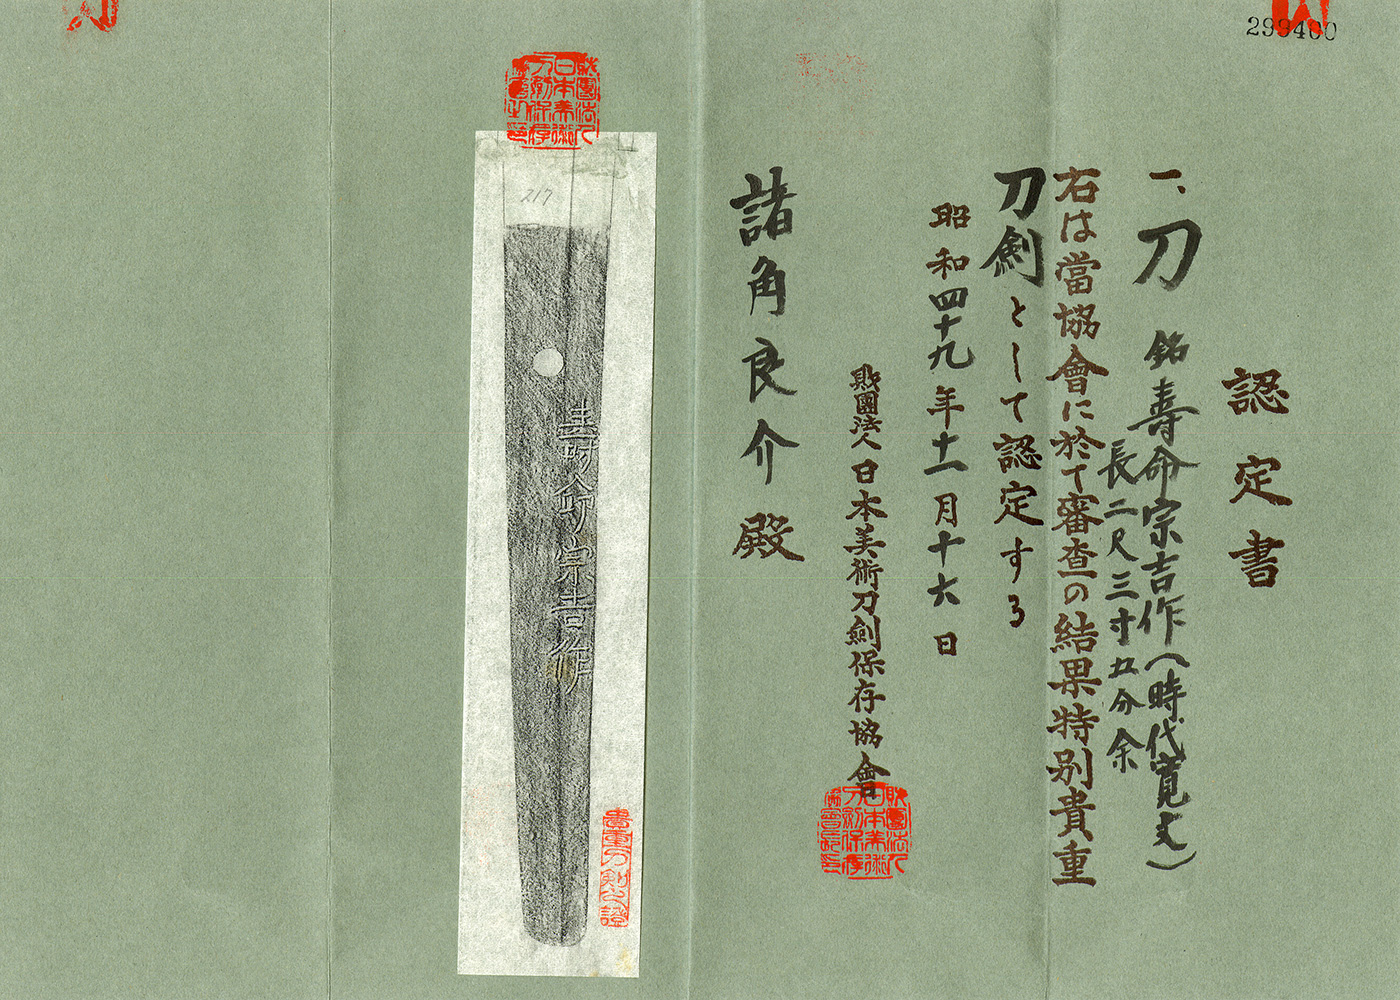 299400
認定書
一、刀 銘 壽命宗吉作(時代寛文)
長二尺三寸五分余
右は當協會に於て審査の結果特別貴重
刀劍として認定する
昭和四十九年十一月十六日
財團法人日本美術刀劍保存協會
財團法人日本美術刀劍保存協會
諸角良介殿
財團法人日本美術刀劍保存
217
壽命宗吉作
貴重刀剣之證